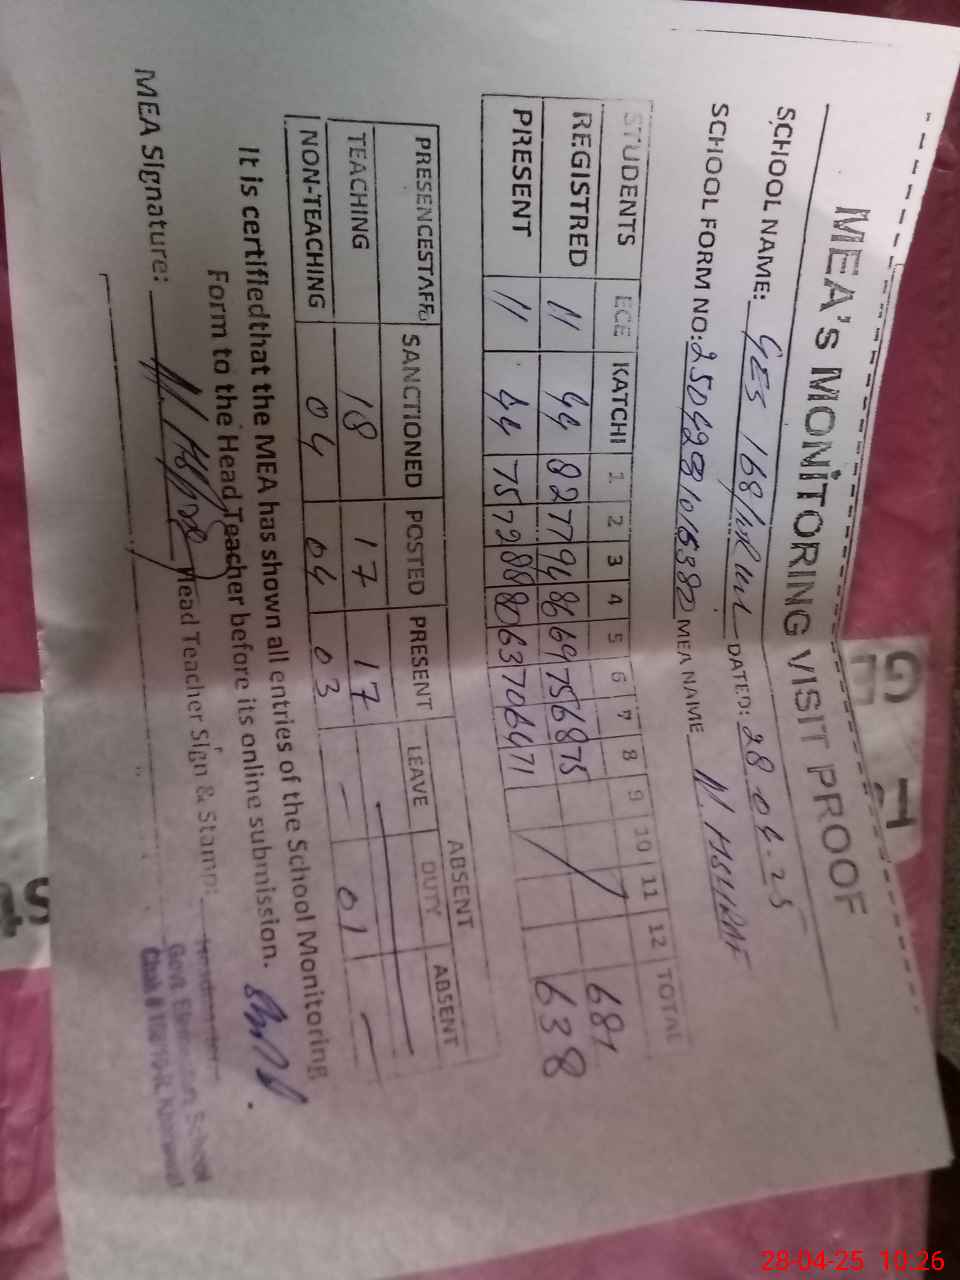 MEA's MONİTORING VISIT PROOF
SCHOOL NAME: GES 168/10R DATED: 28-04-25
SCHOOL FORM NO: MEA NAME
STUDENTS ECE KATCHI 1 2 3 4 5 6 7 8 9 10 11 12 TOTAL
REGISTRED 11 44 82 77 94 86 69 75 68 75 681
PRESENT 11 44 75 72 88 80 63 70 64 71 638
ABSENT
PRESENCESTAFF SANCTIONED POSTED PRESENT LEAVE DUTY ABSENT
TEACHING 18 17 17 — — —
NON-TEACHING 04 04 03 — 01 —
It is certifiedthat the MEA has shown all entries of the School Monitoring
Form to the Head Teacher before its online submission.
MEA Signature: Head Teacher Sign & Stamp:
Govt. Elementary School
28-04-25 10:26